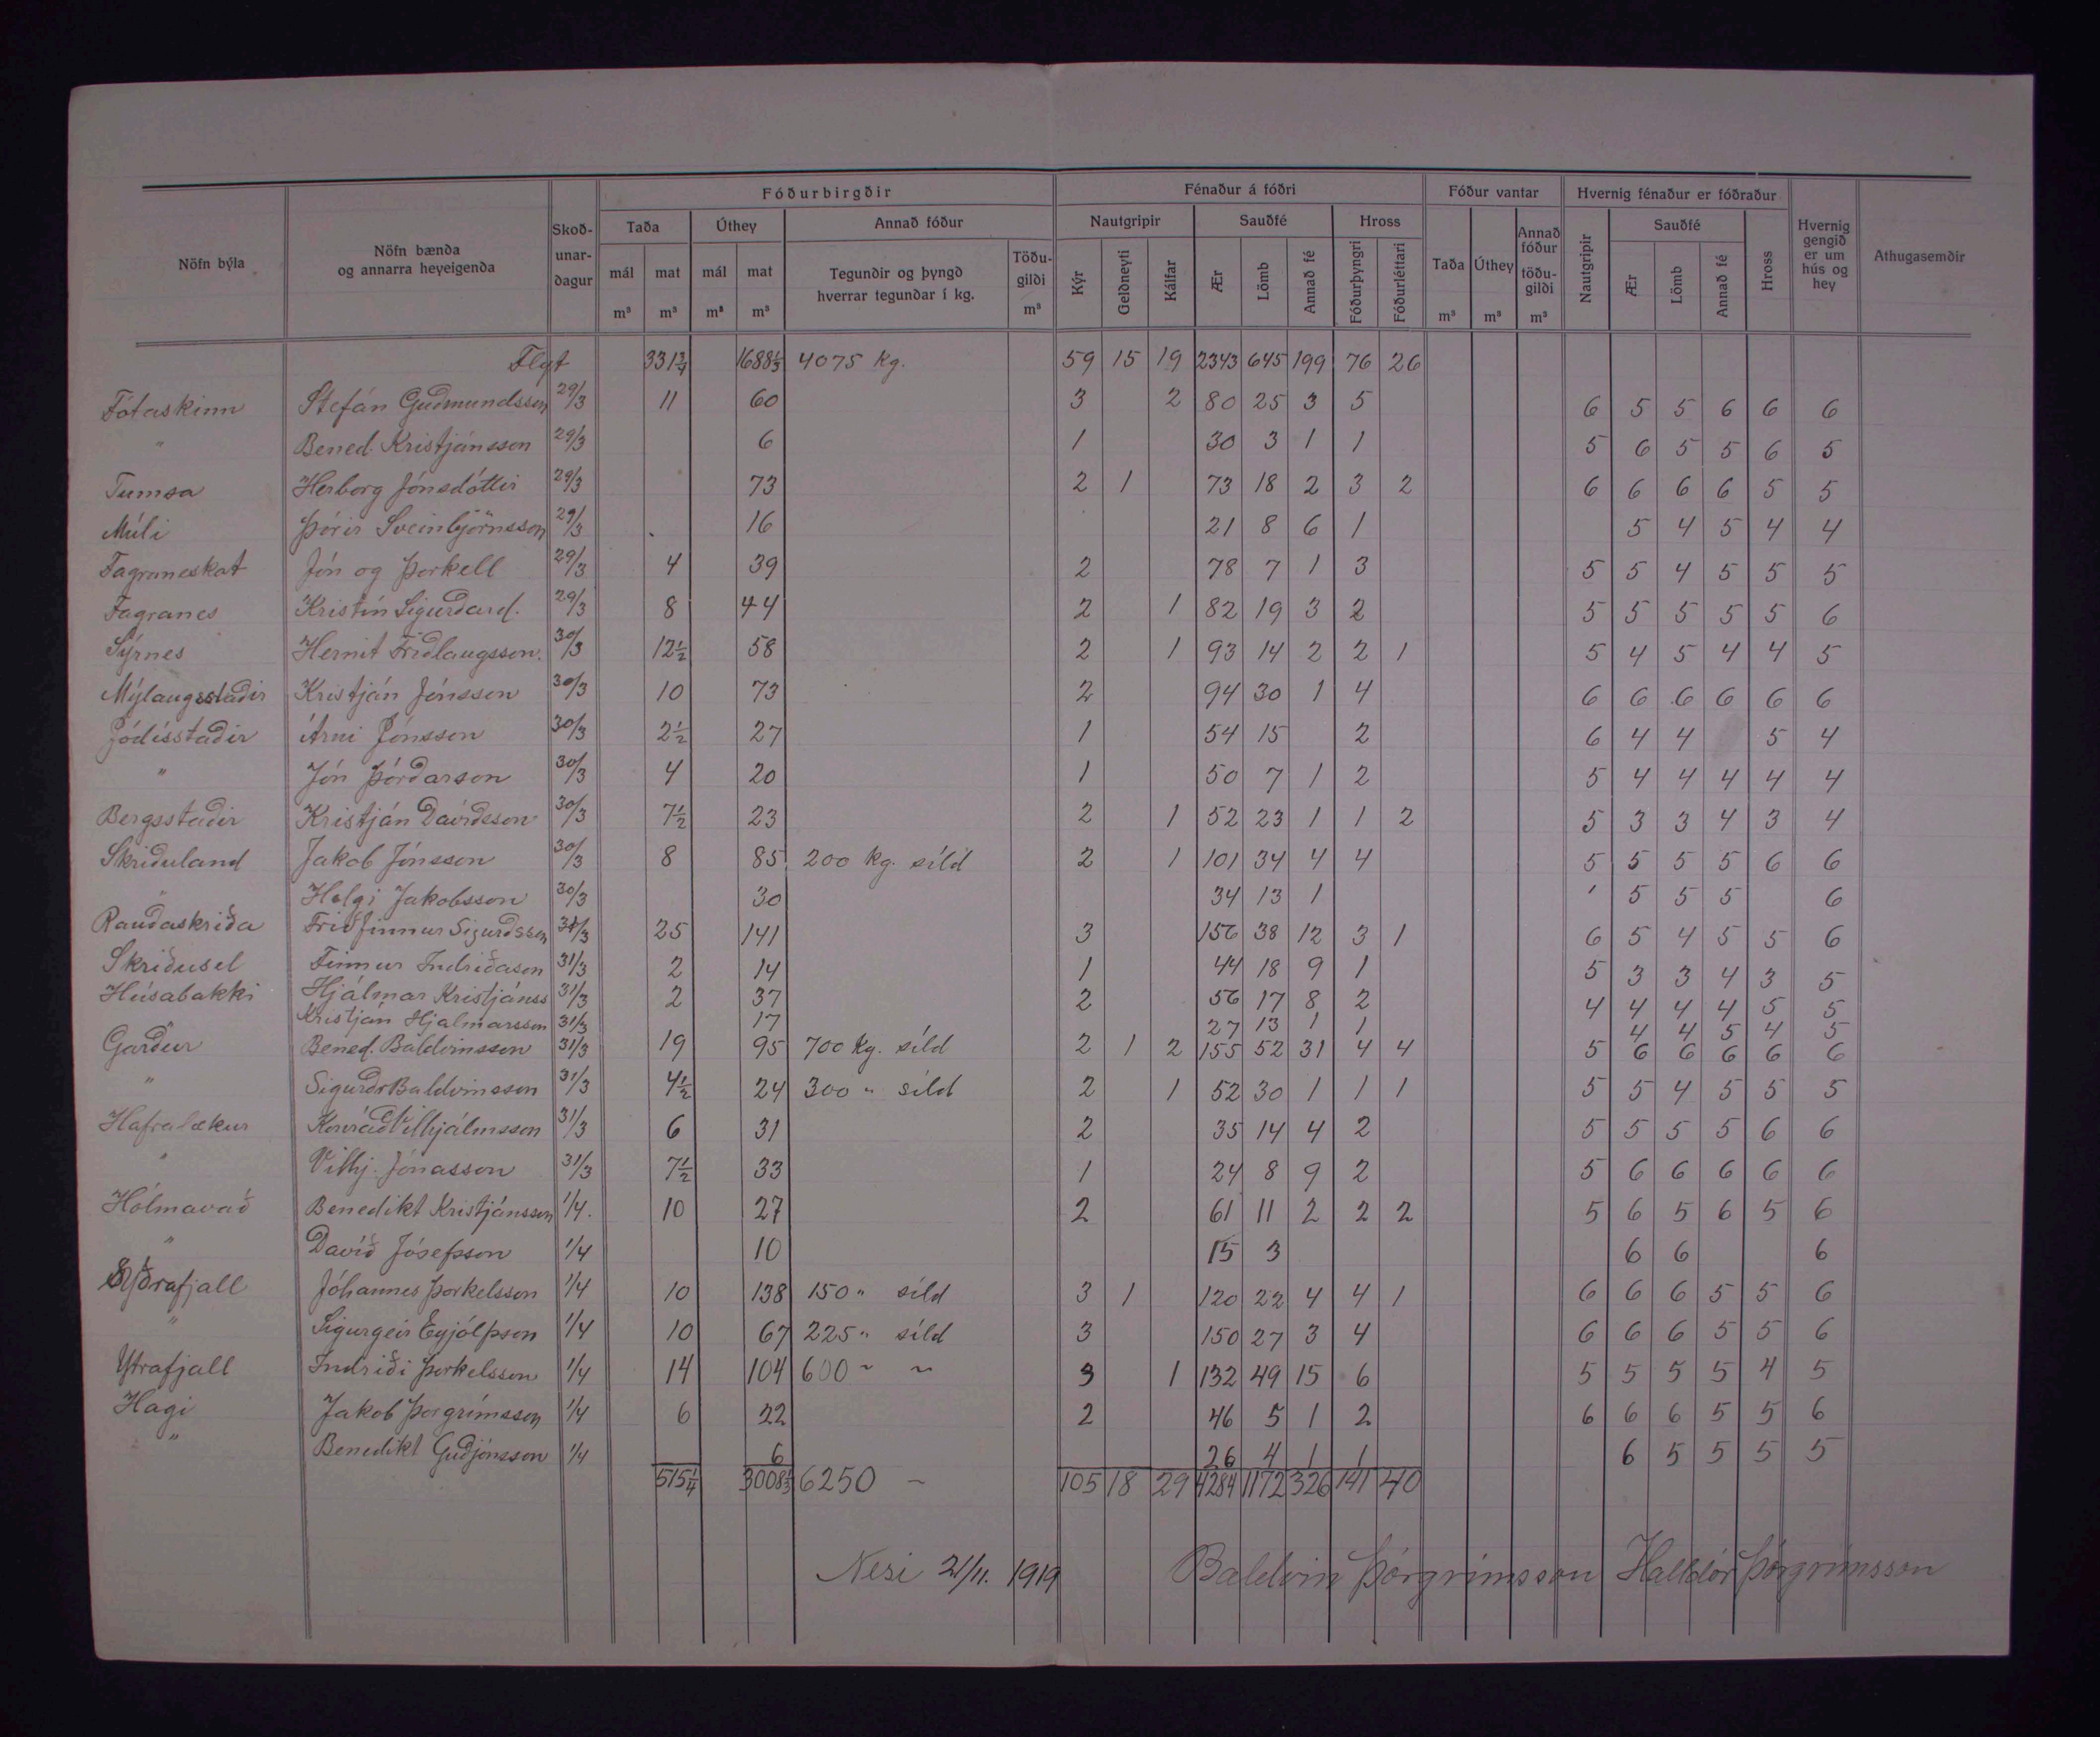 Fóðurbirgðir Fénaður á fóðri Fóður vantar Hvernig fénaður er fóðraður
Nöfn býla Nöfn bænda og annarra heyeigenda Skoð-unar-dagur Taða Úthey Annað fóður Nautgripir Sauðfé Hross Taða Úthey Annað fóður töðu-gildi Nautgripir Sauðfé Hross Hvernig gengið er um hús og hey Athugasemdir
mál mat mál mat Tegundir og þyngd hverrar tegundar í kg. Töðu-gildi Kýr Geldneyti Kálfar Ær Lömb Annað fé Fóðurþyngri Fóðurléttari Ær Lömb Annað fé
m³ m³ m³ m³ m³ m³ m³ m³
Flyt 331¾ 1688⅓ 4075 kg. 59 15 19 2343 645 199 76 26
Fótaskinn Stefán Guðmundsson 29/3 11 60 3 2 80 25 3 5 6 5 5 6 6 6
" Bened. Kristjánsson 29/3 6 1 30 3 1 1 5 6 5 5 6 5
Tumsa Herborg Jónsdóttir 29/3 73 2 1 73 18 2 3 2 6 6 6 6 5 5
Múli Þórir Sveinbjörnsson 29/3 16 21 8 6 1 5 4 5 4 4
Fagraneskot Jón og Þorkell 29/3 4 39 2 78 7 1 3 5 5 4 5 5 5
Fagranes Kristín Sigurðard. 29/3 8 44 2 1 82 19 3 2 5 5 5 5 5 6
Sýrnes Hernit Friðlaugsson. 30/3 12½ 58 2 1 93 14 2 2 1 5 4 5 4 4 5
Mýlaugsstaðir Kristján Jónsson 30/3 10 73 2 94 30 1 4 6 6 6 6 6 6
Jódísstaðir Árni Jónsson 30/3 2½ 27 1 54 15 2 6 4 4 5 4
" Jón Þórðarson 30/3 4 20 1 50 7 1 2 5 4 4 4 4 4
Bergsstaðir Kristján Davíðsson 30/3 7½ 23 2 1 52 23 1 1 2 5 3 3 4 3 4
Skriðuland Jakob Jónsson 30/3 8 85 200 kg. síld 2 1 101 34 4 4 5 5 5 5 6 6
" Helgi Jakobsson 30/3 30 34 13 1 5 5 5 6
Rauðaskriða Friðfinnur Sigurðsson 25 141 3 156 38 12 3 1 6 5 4 5 5 6
Skriðusel Finnur Indriðason 31/3 2 14 1 44 18 9 1 5 3 3 4 3 5
Húsabakki Hjálmar Kristjánss 31/3 2 37 2 56 17 8 2 4 4 4 4 5 5
Kristján Hjalmarsson 31/3 17 27 13 1 1 4 4 5 4 5
Garður Bened. Baldvinsson 31/3 19 95 700 kg. síld 2 1 2 155 52 31 4 4 5 6 6 6 6 6
" Sigurðr Baldvinsson 31/3 4½ 24 300 " síld 2 1 52 30 1 1 1 5 5 4 5 5 5
Hafralækur Konráð Vilhjálmsson 31/3 6 31 2 35 14 4 2 5 5 5 5 6 6
" Vilhj. Jónasson 31/3 7½ 33 1 24 8 9 2 5 6 6 6 6 6
Hólmavað Benedikt Kristjánsson 1/4. 10 27 2 61 11 2 2 2 5 6 5 6 5 6
" Davíð Jósefsson 1/4 10 15 3 6 6 6
Syðrafjall Jóhannes Þorkelsson 1/4 10 138 150 " síld 3 1 120 22 4 4 1 6 6 6 5 5 6
" Sigurgeir Eyjólfsson 1/4 10 67 225 " síld 3 150 27 3 4 6 6 6 5 5 6
Ytrafjall Indriði Þorkelsson 1/4 14 104 600 " " 3 1 132 49 15 6 5 5 5 5 4 5
Hagi Jakob Þorgrímsson 1/4 6 22 2 46 5 1 2 6 6 6 5 5 6
" Benedikt Guðjónsson 1/4 6 26 4 1 1 6 5 5 5 5
515¼ 3008⅓ 6250 - 105 18 29 4284 1172 326 141 40
Nesi 21/11. 1919 Baldvin Þórgrímsson Halldór Þórgrímsson